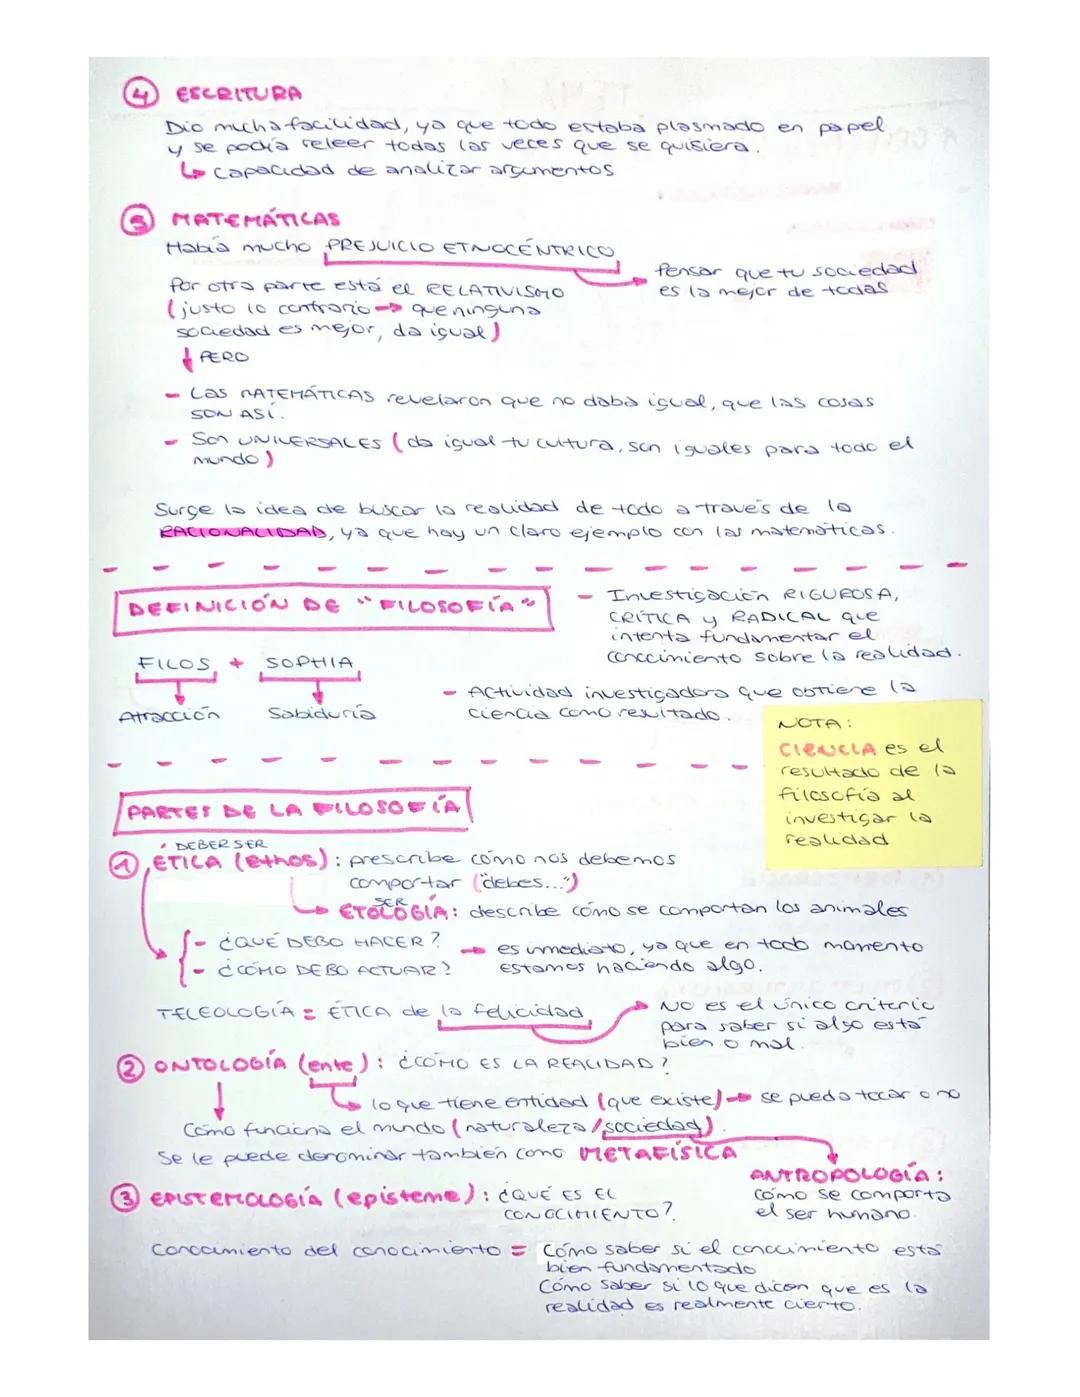 4 ESCRITURA
Dio mucha facilidad, ya que todo estaba plasmado en papel
y se podía releer todas las veces que se quisiera.
↳ capacidad de analizar argumentos
5 MATEMÁTICAS
Había mucho PREJUICIO ETNOCÉNTRICO
→ Pensar que tu sociedad
es la mejor de todas
Por otra parte está el RELATIVISMO
(justo lo contrario → que ninguna
sociedad es mejor, da igual)
↓ PERO
- Las MATEMÁTICAS revelaron que no daba igual, que las cosas
SON ASÍ.
- Son UNIVERSALES (da igual tu cultura, son iguales para todo el
mundo)
Surge la idea de buscar la realidad de todo a través de la
RACIONALIDAD, ya que hay un claro ejemplo con las matemáticas.
DEFINICIÓN DE "FILOSOFÍA"
FILOS + SOPHIA
Atracción Sabiduría
- Investigación RIGUROSA,
CRÍTICA y RADICAL que
intenta fundamentar el
conocimiento sobre la realidad.
- Actividad investigadora que obtiene la
ciencia como resultado.
NOTA:
CIENCIA es el
resultado de la
filosofía al
investigar la
realidad
PARTES DE LA FILOSOFÍA
DEBER SER
1 ÉTICA (ethos): prescribe cómo nos debemos
comportar ("debes...")
SER
→ ETOLOGÍA: describe cómo se comportan los animales
- ¿QUÉ DEBO HACER?
- ¿CÓMO DEBO ACTUAR?
→ es inmediato, ya que en todo momento
estamos haciendo algo.
TELEOLOGÍA = ÉTICA de la felicidad
→ NO es el único criterio
para saber si algo está
bien o mal.
2 ONTOLOGÍA (ente): ¿CÓMO ES LA REALIDAD?
↳ lo que tiene entidad (que existe) → se pueda tocar o no
Cómo funciona el mundo (naturaleza/sociedad).
Se le puede denominar también como METAFÍSICA
ANTROPOLOGÍA:
cómo se comporta
el ser humano.
3 EPISTEMOLOGÍA (episteme): ¿QUÉ ES EL
CONOCIMIENTO?
Conocimiento del conocimiento = Cómo saber si el conocimiento está
bien fundamentado
Cómo saber si lo que dicen que es la
realidad es realmente cierto.